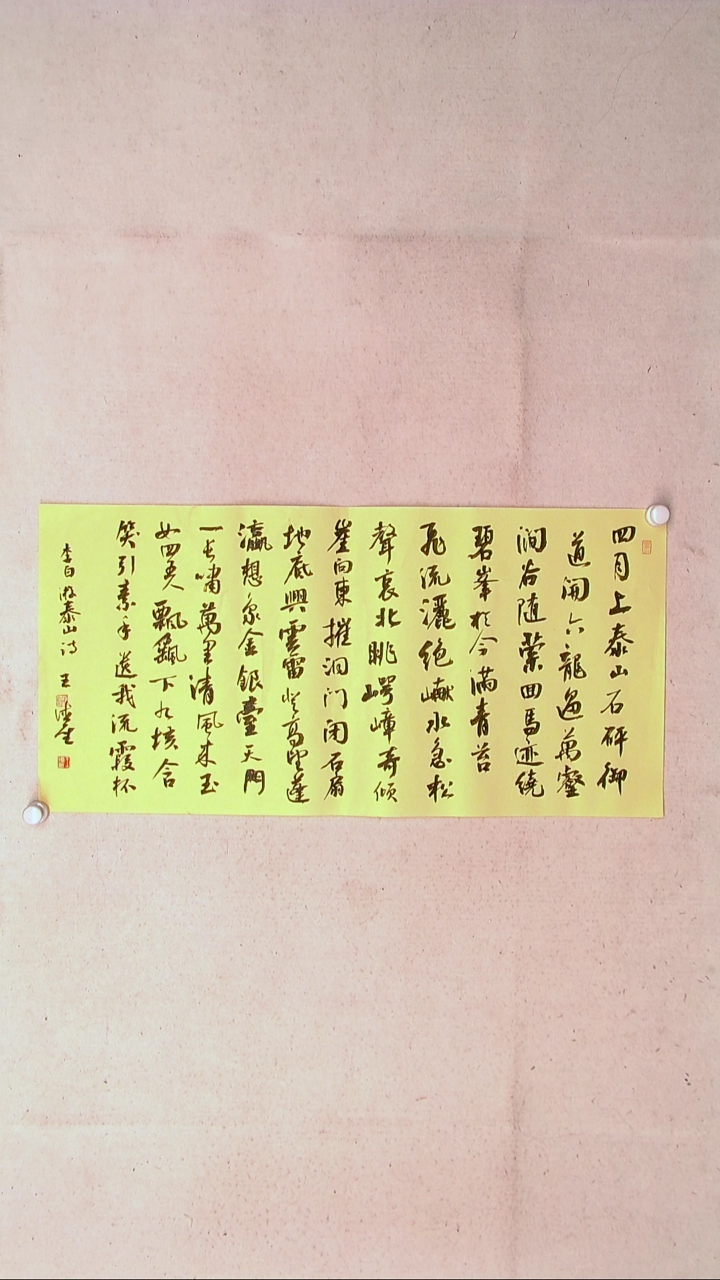 四月上泰山石砰御
道開六龍過萬壑
澗谷隨縈回馬迹繞
碧峯於今滿青苔
飛流灑絶巘水急松
聲哀北眺崿嶂奇傾
崖向東摧洞门闭石扇
地底興雲雷登高望蓬
瀛想象金銀臺天門
一长嘯萬里清風来玉
女四五人飄颻下九垓含
笑引素手送我流霞杯
李白游泰山诗 王